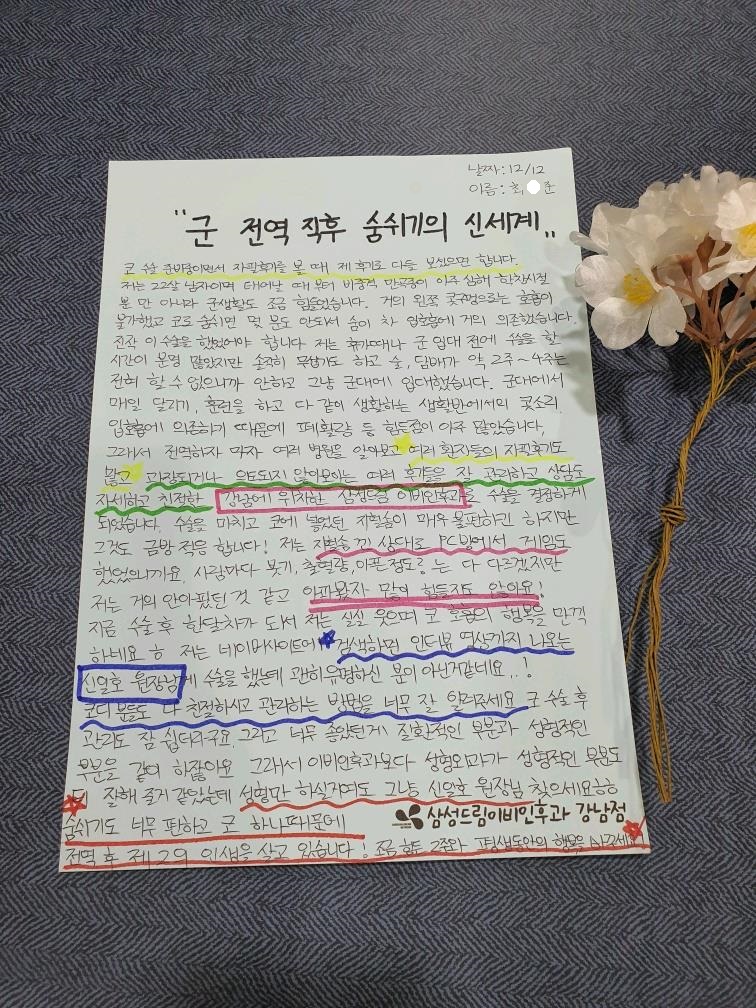 날짜: 12/12
이름: 최 준
"군 전역 직후 숨쉬기의 신세계"
코 수술 준비중이면서 자필후기를 볼 때 제 후기로 다들 보셨으면 합니다.
저는 22살 남자이며 태어날 때부터 비중격 만곡증이 아주 심해 학창시절
뿐 만 아니라 군생활도 조금 힘들었습니다. 거의 왼쪽 콧구멍으로는 호흡이
불가했고 코로 숨쉬면 몇 분도 안돼서 숨이 차 입호흡에 거의 의존했습니다.
진작 이 수술을 했었어야 합니다 저는 휴가때나 군 입대 전에 수술을 할
시간이 분명 많았지만 솔직히 무섭기도 하고 술, 담배가 약 2주~4주는
전혀 할 수 없으니까 안하고 그냥 군대에 입대했습니다. 군대에서
매일 달리기, 훈련을 하고 다 같이 생활하는 생활반에서의 콧소리,
입호흡에 의존하기 때문에 폐활량 등 힘든점이 아주 많았습니다.
그래서 전역하자 마자 여러 병원을 알아보고 여러 환자들의 자필후기도
많고 과장되거나 의도되지 않아보이는 여러 후기들을 잘 관리하고 상담도
자세하고 친절한 강남에 위치한 삼성드림 이비인후과로 수술을 결정하게
되었습니다. 수술을 마치고 코에 넣었던 지혈솜이 매우 불편하긴 하지만
그것도 금방 적응 합니다! 저는 지혈솜 낀 상태로 PC방에서 게임도
했었으니까요. 사람마다 붓기, 출혈량, 아픈 정도는 다 다르겠지만
저는 거의 안아팠던 것 같고 아파봤자 많이 힘들지도 않아요!
지금 수술 후 한달차가 돼서 저는 실실 웃으며 코 호흡의 행복을 만끽
하네요 ㅎ 저는 네이버사이트에 검색하면 인터뷰 영상까지 나오는
신일호 원장님께 수술을 했는데 괜히 유명하신 분이 아닌거같네요..!
분들도 다 친절하시고 관리하는 방법을 너무 잘 알려주세요 코 수술 후
관리도 참 쉽더라구요. 그리고 너무 좋았던게 질환적인 부분과 성형적인
부분을 같이 하잖아요 그래서 이비인후과보다 성형외과가 성형적인 부분도
더 잘해 줄거 같았는데 성형만 하실거여도 그냥 신일호 원장님 찾으세요ㅎㅎ
숨쉬기도 너무 편하고 코 하나때문에
삼성드림이비인후과 강남점
전역 후 제 2의 인생을 살고 있습니다! 조금 힘든 2주와 평생동안의 행복을 바꾸세요